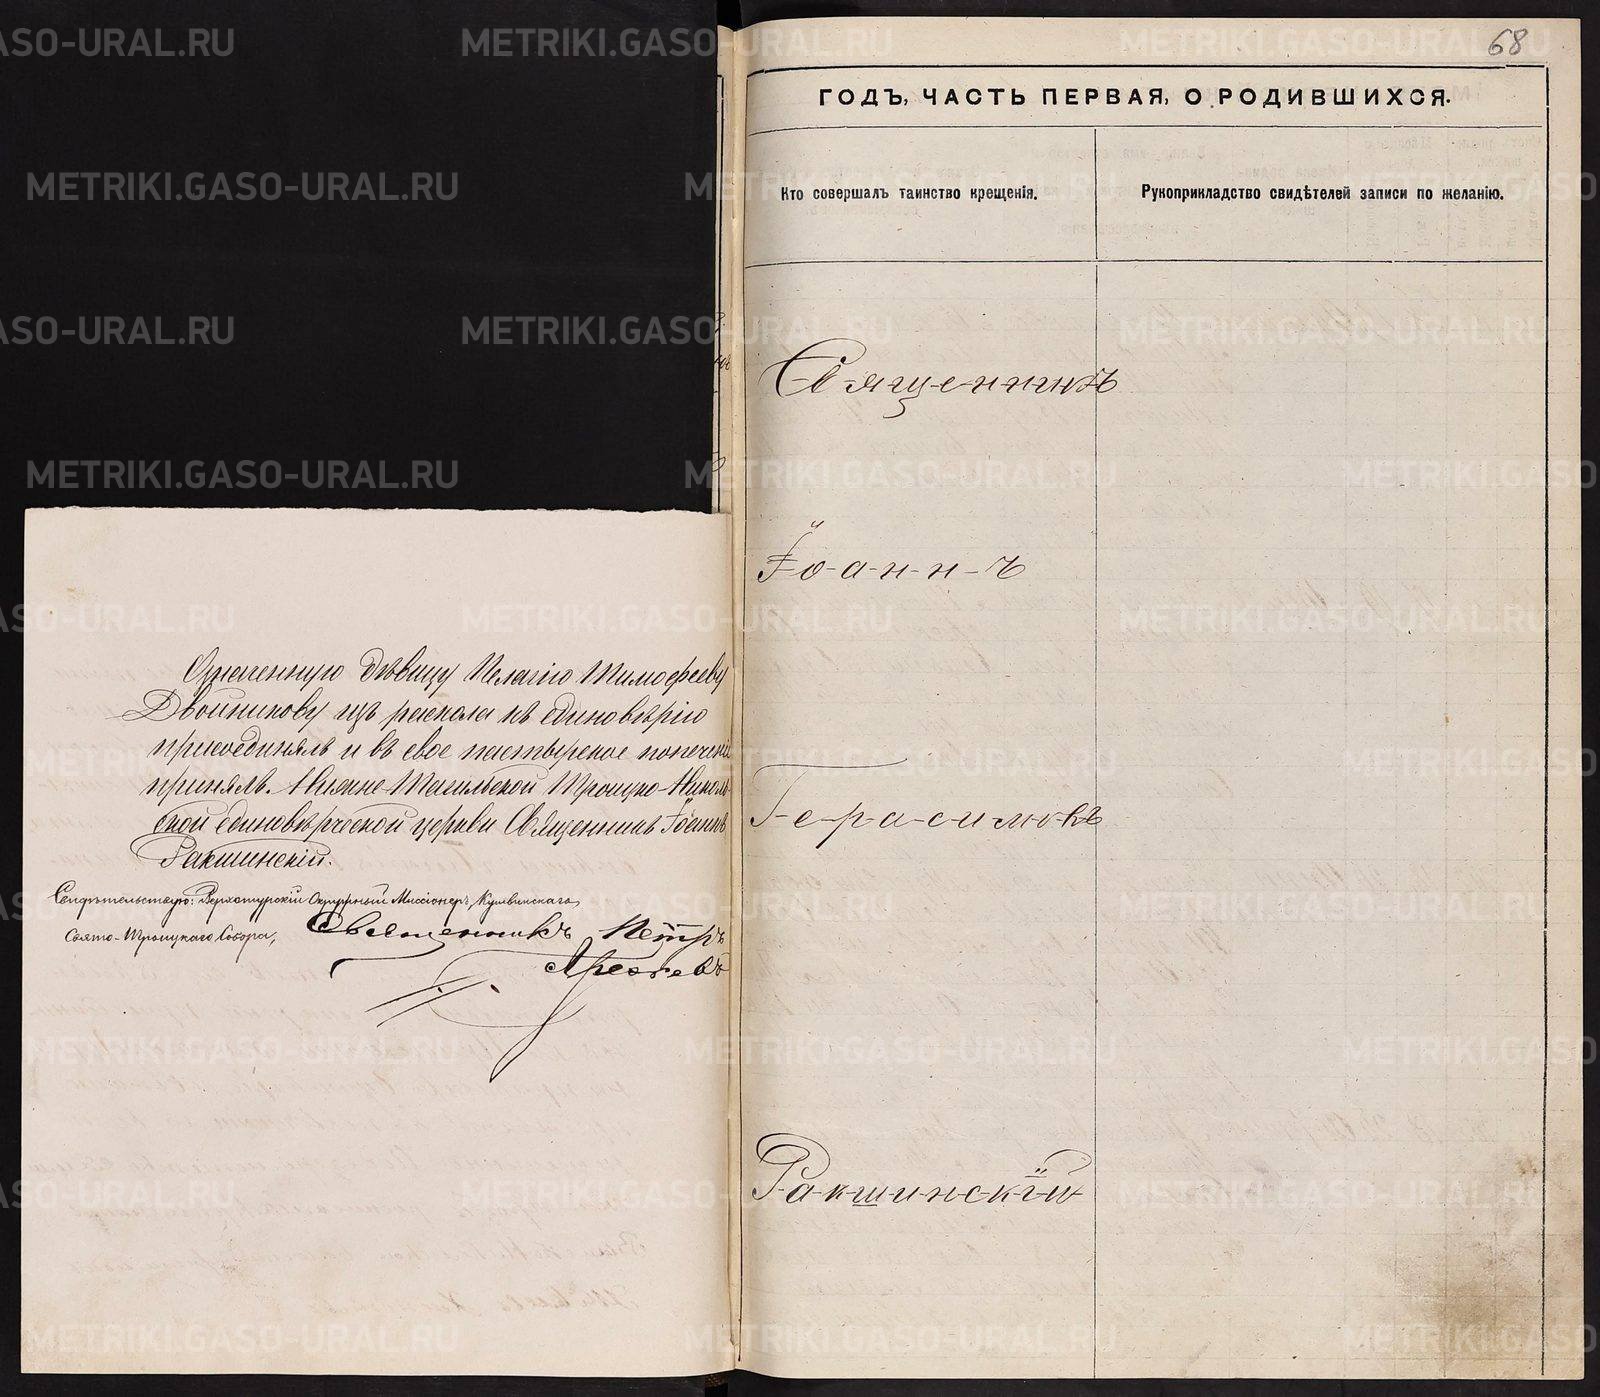 Означенную дѣвицу Пелагію Тимофееву
Двойникову изъ раскола къ единовѣрію
присоединялъ и въ свое пастырское попеченіе
принялъ. Нижне-Тагильской Троицко-Николь-
ской единовѣрческой церкви Священникъ Іоаннъ
Ракшинскій.
Свидѣтельствую: Верхотурскій Окружный Миссіонеръ, Кушвинскаго
Свято-Троицкаго Собора,
Священникъ Петръ
68
ГОДЪ, ЧАСТЬ ПЕРВАЯ, О РОДИВШИХСЯ.
Кто совершалъ таинство крещенія.
Рукоприкладство свидѣтелей записи по желанію.
Священникъ
Іоаннъ
Герасимовъ
Ракшинскій
METRIKI.GASO-URAL.RU